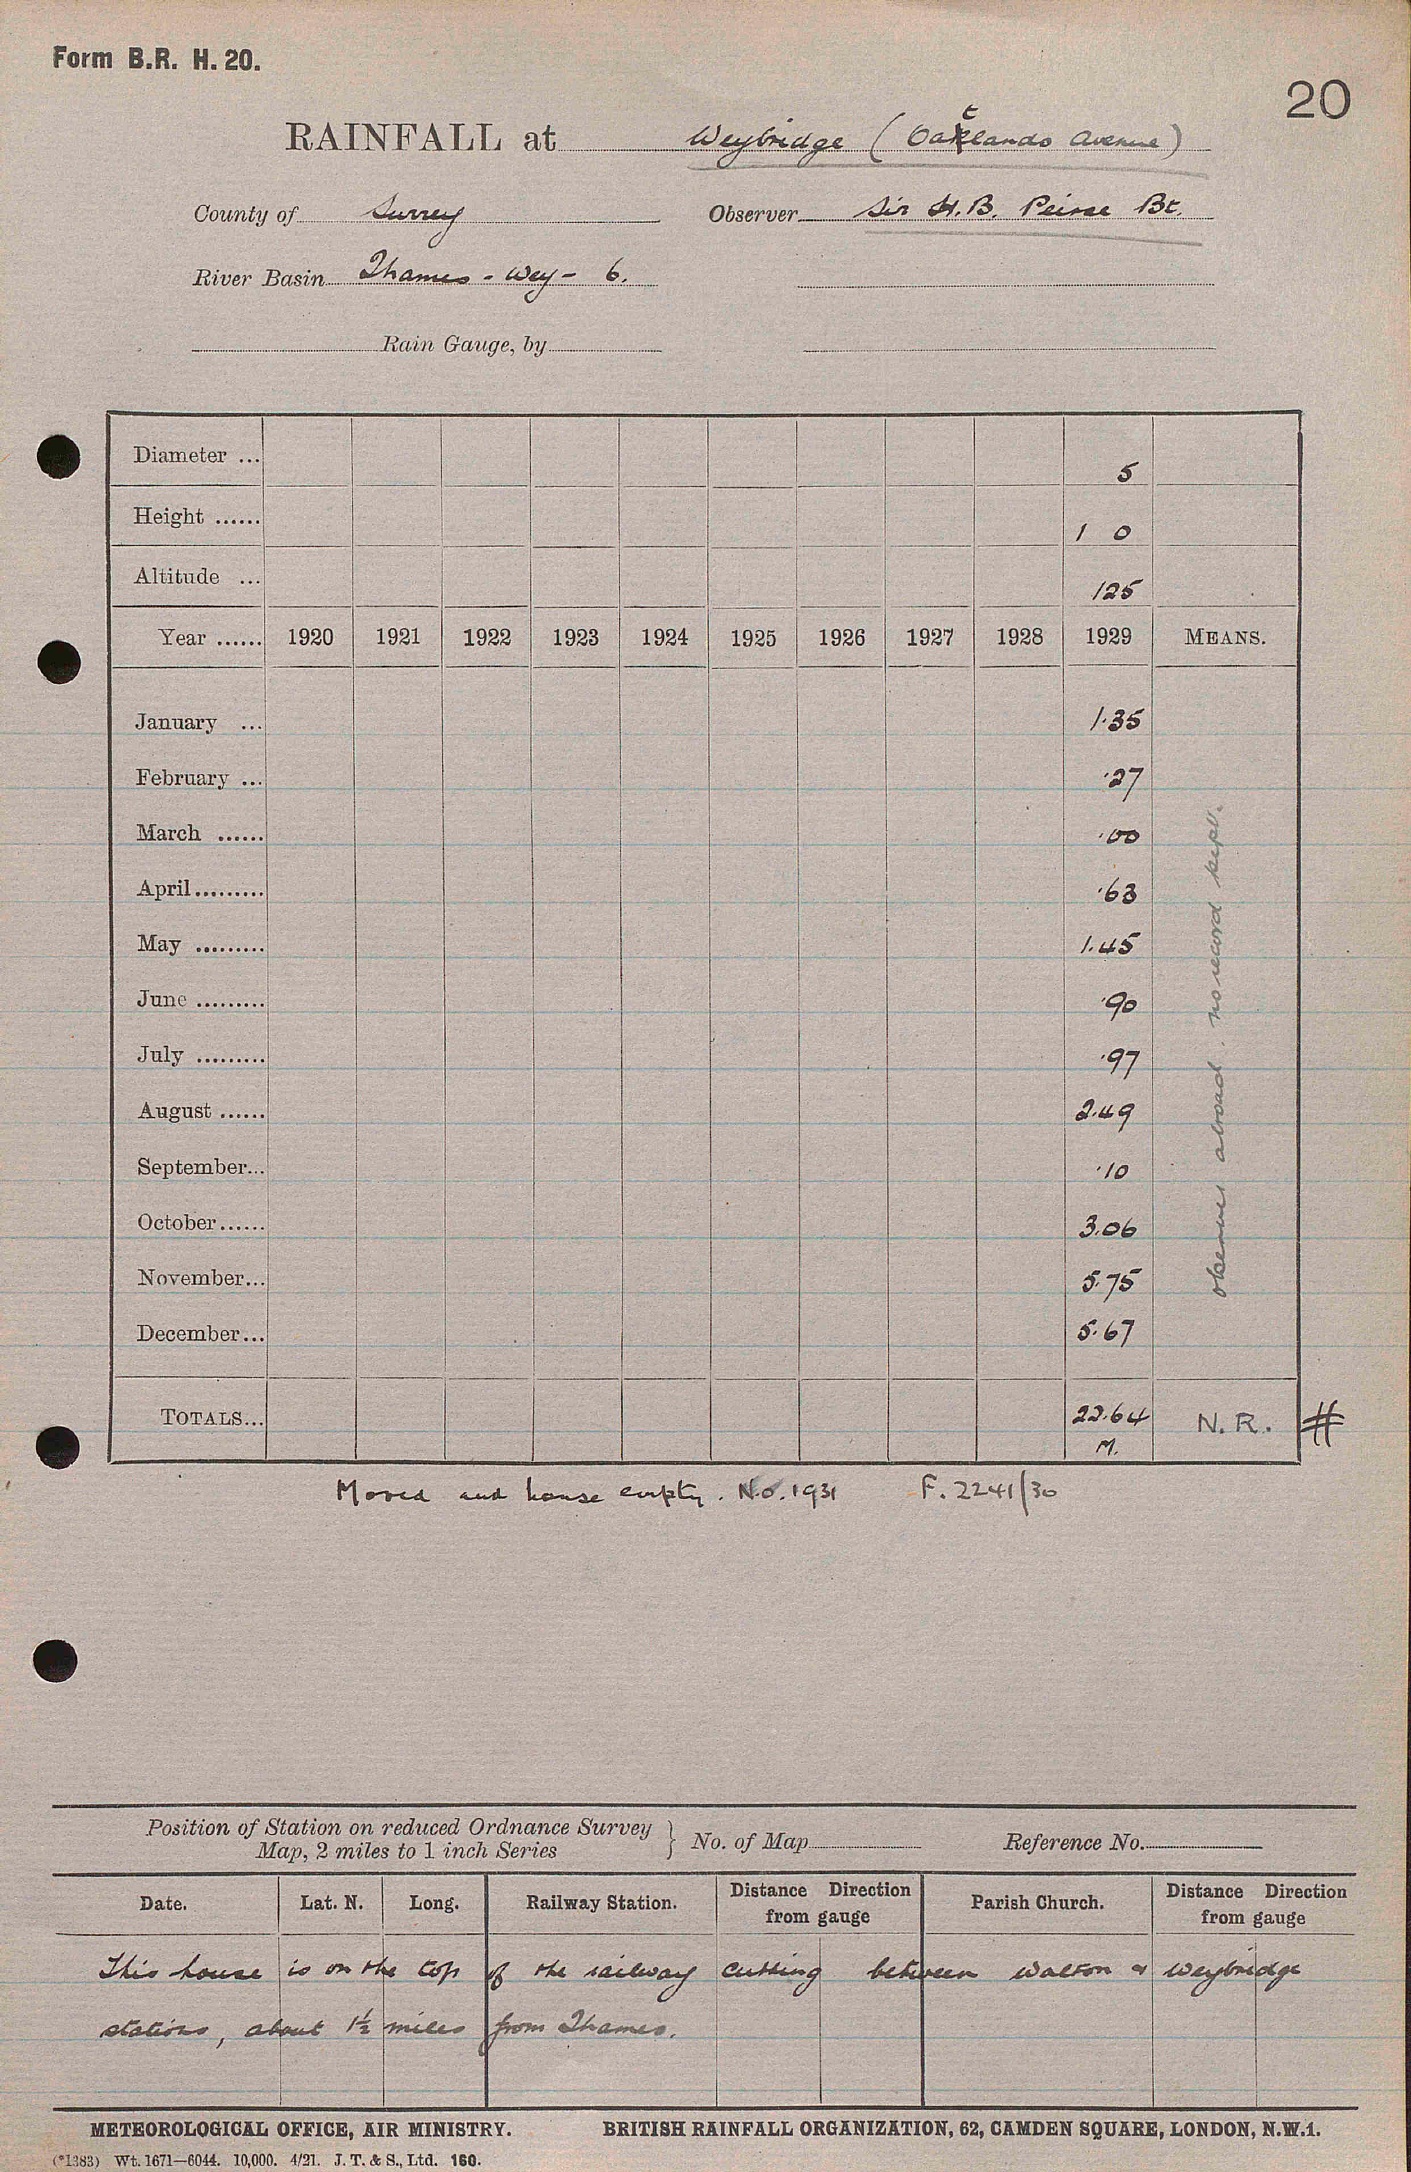 Form B.R. H. 20.
20
RAINFALL at Weybridge (Oatlands Avenue)
County of Surrey Observer Sir H.B. Peirse Bt.
River Basin Thames - Wey - 6.
Rain Gauge, by
Diameter ... 5
Height ...... 1 0
Altitude ... 125
Year ...... 1920 1921 1922 1923 1924 1925 1926 1927 1928 1929 MEANS.
January ... 1.35
February ... .27
March ...... .00
April......... .63
May ......... 1.45
June ......... .90
July ......... .97
August ...... 2.49
September... .10
October...... 3.06
November... 5.75
December... 5.67
observer abroad. no record kept.
TOTALS... 22.64 N.R. #
M.
Moved and house empty. N.O. 1931 F. 2241/30
Position of Station on reduced Ordnance Survey
Map, 2 miles to 1 inch Series } No. of Map Reference No.
Date. Lat. N. Long. Railway Station. Distance Direction from gauge Parish Church. Distance Direction from gauge
This house is on the top of the railway cutting between Walton & Weybridge
stations, about 1½ miles from Thames.
METEOROLOGICAL OFFICE, AIR MINISTRY. BRITISH RAINFALL ORGANIZATION, 62, CAMDEN SQUARE, LONDON, N.W.1.
(*1383) Wt. 1671—6044. 10,000. 4/21. J. T. & S., Ltd. 160.